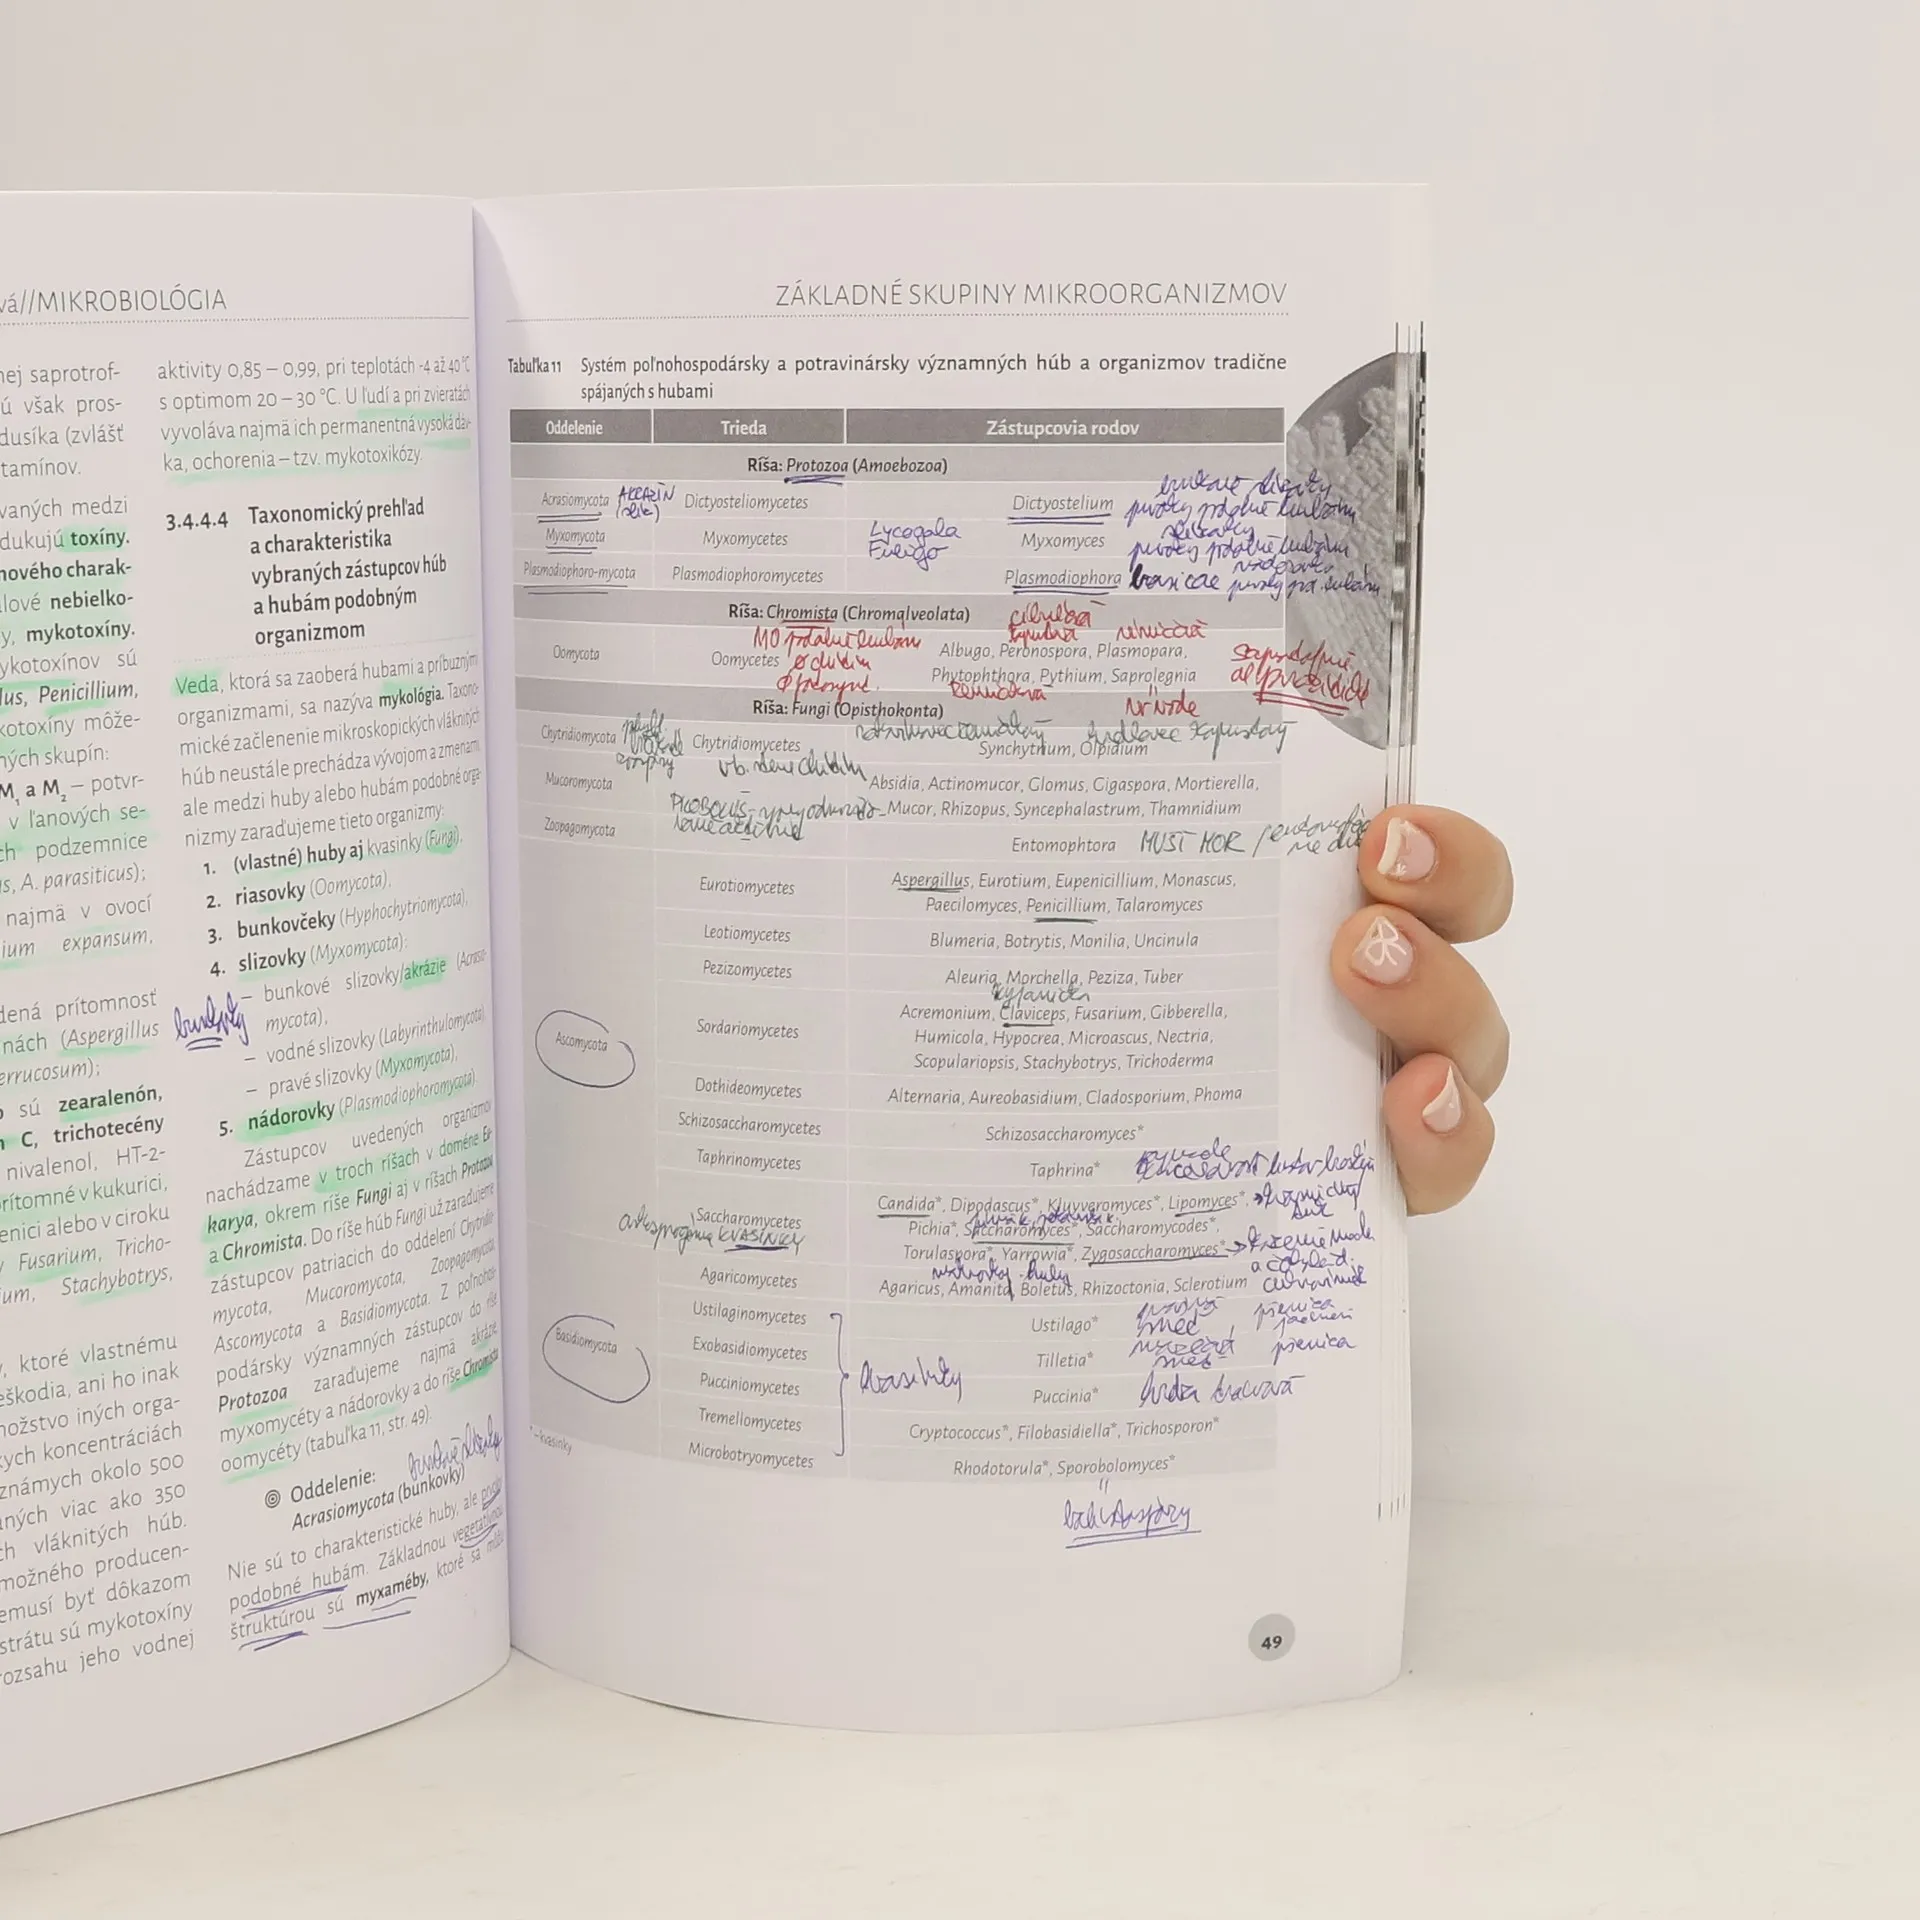 vá//MIKROBIOLÓGIA
nej saprotrof-
ú však pros-
dusíka (zvlášť
tamínov.
vaných medzi
dukujú toxíny.
nového charak-
lové nebielko-
y, mykotoxíny.
ykotoxínov sú
lus, Penicillium,
kotoxíny môže-
ných skupín:
M1 a M2 – potvr-
v ľanových se-
ch podzemnice
s, A. parasiticus);
najmä v ovocí
ium expansum,
dená prítomnosť
nách (Aspergillus
errucosum);
o sú zearalenón,
n C, trichotecény
nivalenol, HT-2-
rítomné v kukurici,
enici alebo v ciroku
Fusarium, Tricho-
um, Stachybotrys,
, ktoré vlastnému
eškodia, ani ho inak
nožstvo iných orga-
kych koncentráciách
známych okolo 500
aných viac ako 350
ch vláknitých húb.
možného producen-
emusí byť dôkazom
strátu sú mykotoxíny
rozsahu jeho vodnej
aktivity 0,85 – 0,99, pri teplotách -4 až 40 °C
s optimom 20 – 30 °C. U ľudí a pri zvieratách
vyvoláva najmä ich permanentná vysoká dáv-
ka, ochorenia – tzv. mykotoxikózy.
3.4.4.4 Taxonomický prehľad
a charakteristika
vybraných zástupcov húb
a hubám podobným
organizmom
Veda, ktorá sa zaoberá hubami a príbuznými
organizmami, sa nazýva mykológia. Taxono-
mické začlenenie mikroskopických vláknitých
húb neustále prechádza vývojom a zmenami,
ale medzi huby alebo hubám podobné orga-
nizmy zaraďujeme tieto organizmy:
1. (vlastné) huby aj kvasinky (Fungi),
2. riasovky (Oomycota),
3. bunkovčeky (Hyphochytriomycota),
4. slizovky (Myxomycota):
– bunkové slizovky/akrázie (Acrasio-
mycota),
bunkovky
– vodné slizovky (Labyrinthulomycota),
– pravé slizovky (Myxomycota),
5. nádorovky (Plasmodiophoromycota).
Zástupcov uvedených organizmov
nachádzame v troch ríšach v doméne Eu-
karya, okrem ríše Fungi aj v ríšach Protozoa
a Chromista. Do ríše húb Fungi už zaraďujeme
zástupcov patriacich do oddelení Chytridio-
mycota, Mucoromycota, Zoopagomycota,
Ascomycota a Basidiomycota. Z poľnohos-
podársky významných zástupcov do ríše
Protozoa zaraďujeme najmä akrázie,
myxomycéty a nádorovky a do ríše Chromista
oomycéty (tabuľka 11, str. 49).
Oddelenie:
Acrasiomycota (bunkovky)
Nie sú to charakteristické huby, ale prvoky
podobné hubám. Základnou vegetatívnou
štruktúrou sú myxaméby, ktoré sa môžu
ZÁKLADNÉ SKUPINY MIKROORGANIZMOV
Tabuľka 11 Systém poľnohospodársky a potravinársky významných húb a organizmov tradične
spájaných s hubami
Oddelenie Trieda Zástupcovia rodov
Ríša: Protozoa (Amoebozoa)
Acrasiomycota Dictyosteliomycetes Dictyostelium
Myxomycota Myxomycetes Lycogala Fuligo Myxomyces
Plasmodiophoro-mycota Plasmodiophoromycetes Plasmodiophora
Ríša: Chromista (Chromalveolata)
Oomycota Oomycetes Albugo, Peronospora, Plasmopara,
Phytophthora, Pythium, Saprolegnia
Ríša: Fungi (Opisthokonta)
Chytridiomycota Chytridiomycetes Synchytrium, Olpidium
Mucoromycota Absidia, Actinomucor, Glomus, Gigaspora, Mortierella,
Mucor, Rhizopus, Syncephalastrum, Thamnidium
Zoopagomycota Entomophtora MUŠÍ MOR
Eurotiomycetes Aspergillus, Eurotium, Eupenicillium, Monascus,
Paecilomyces, Penicillium, Talaromyces
Leotiomycetes Blumeria, Botrytis, Monilia, Uncinula
Pezizomycetes Aleuria, Morchella, Peziza, Tuber
Ascomycota Sordariomycetes Acremonium, Claviceps, Fusarium, Gibberella,
Humicola, Hypocrea, Microascus, Nectria,
Scopulariopsis, Stachybotrys, Trichoderma
Dothideomycetes Alternaria, Aureobasidium, Cladosporium, Phoma
Schizosaccharomycetes Schizosaccharomyces*
Taphrinomycetes Taphrina*
Saccharomycetes Candida*, Dipodascus*, Kluyveromyces*, Lipomyces*,
Pichia*, Saccharomyces*, Saccharomycodes*,
KVASINKY
Torulaspora*, Yarrowia*, Zygosaccharomyces*
Agaricomycetes Agaricus, Amanita, Boletus, Rhizoctonia, Sclerotium
Ustilaginomycetes Ustilago*
Basidiomycota Exobasidiomycetes Tilletia* pšenica
Pucciniomycetes kvasinky Puccinia*
Tremellomycetes Cryptococcus*, Filobasidiella*, Trichosporon*
Microbotryomycetes Rhodotorula*, Sporobolomyces*
* – kvasinky
balistospóry
49